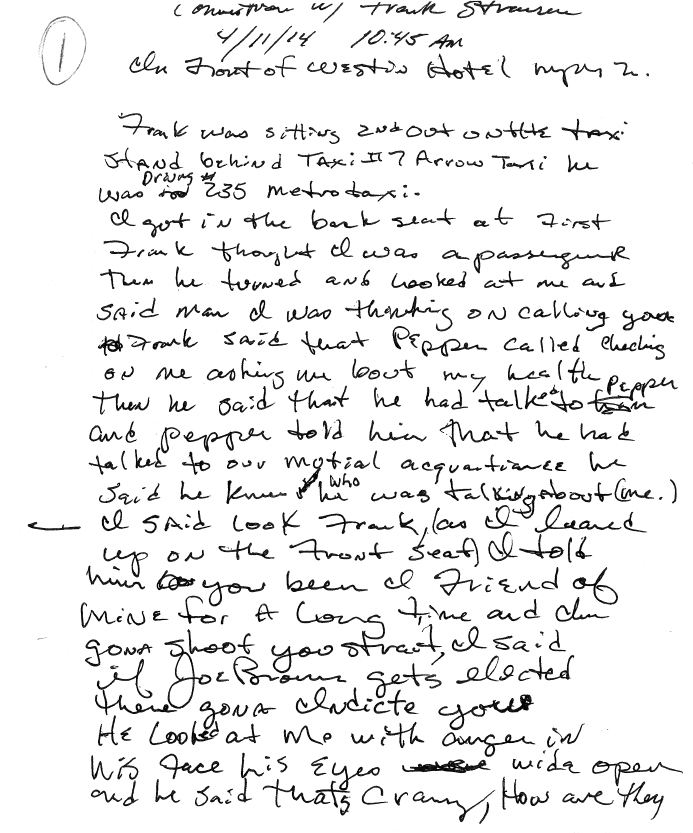 1
w/ Frank
4/11/14 10:45 AM
In Front of Westin Hotel
Frank was sitting 2nd out on the taxi
stand behind Taxi #7 Arrow Taxi he
was Driving # 235 metro taxi.
I got in the back seat at First
Frank thought I was a passenger
Then he turned and looked at me and
said man I was thinking on calling you
Frank said that Pepper called checking
on me asking me bout my health
Then he said that he had talked to Pepper
and Pepper told him that he had
talked to our mutial acquantiance he
said he knew who he was talking about (me.)
I said look Frank, (as I leaned
up on the Front seat) I told
him you been a Friend of
mine for a long time and Im
gona shoot you strait, I said
if Joe Brown gets elected
there gona Indicte you
He looked at me with anger in
his face his eyes wide open
and he said thats Crazy, How are they